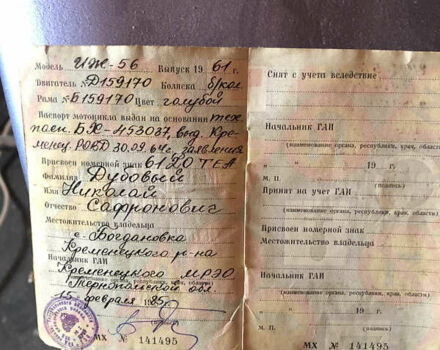 Модель ИЖ-56 Выпуск 1961 г.
Двигатель № Д159170 Коляска б/кол
Рама № Б159170 Цвет голубой
Паспорт мотоцикла выдан на основании тех.
пасп. БЖ-453087, выд. Кре-
менец. РОВД 30.09.64г, заявления
Присвоен номерной знак 6120 ТЕА
Фамилия Дубовый
Имя Николай
Отчество Сафронович
Местожительство владельца
с. Богдановка
Кременецкого р-на
Начальник ГАИ
Кременецкого МРЭО
(наименование органа, республики, края, области)
Тернопольской обл.
15 февраля 1985 г.
М. П.
МХ № 141495
Снят с учета вследствие
Начальник ГАИ
(наименование органа, республики, края, области)
" " 19 г.
М. П. (подпись)
Принят на учет ГАИ
(наименование органа, республики, края, области)
Присвоен номерной знак
Местожительство владельца
Начальник ГАИ
(наименование органа, республики, края, области)
" " 19 г.
М. П. (подпись)
МХ № 141495